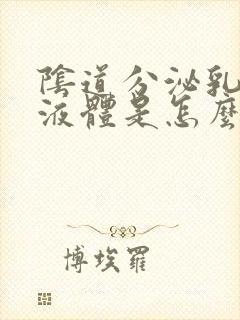 陰道分泌乳
液體是怎麼
博埃羅